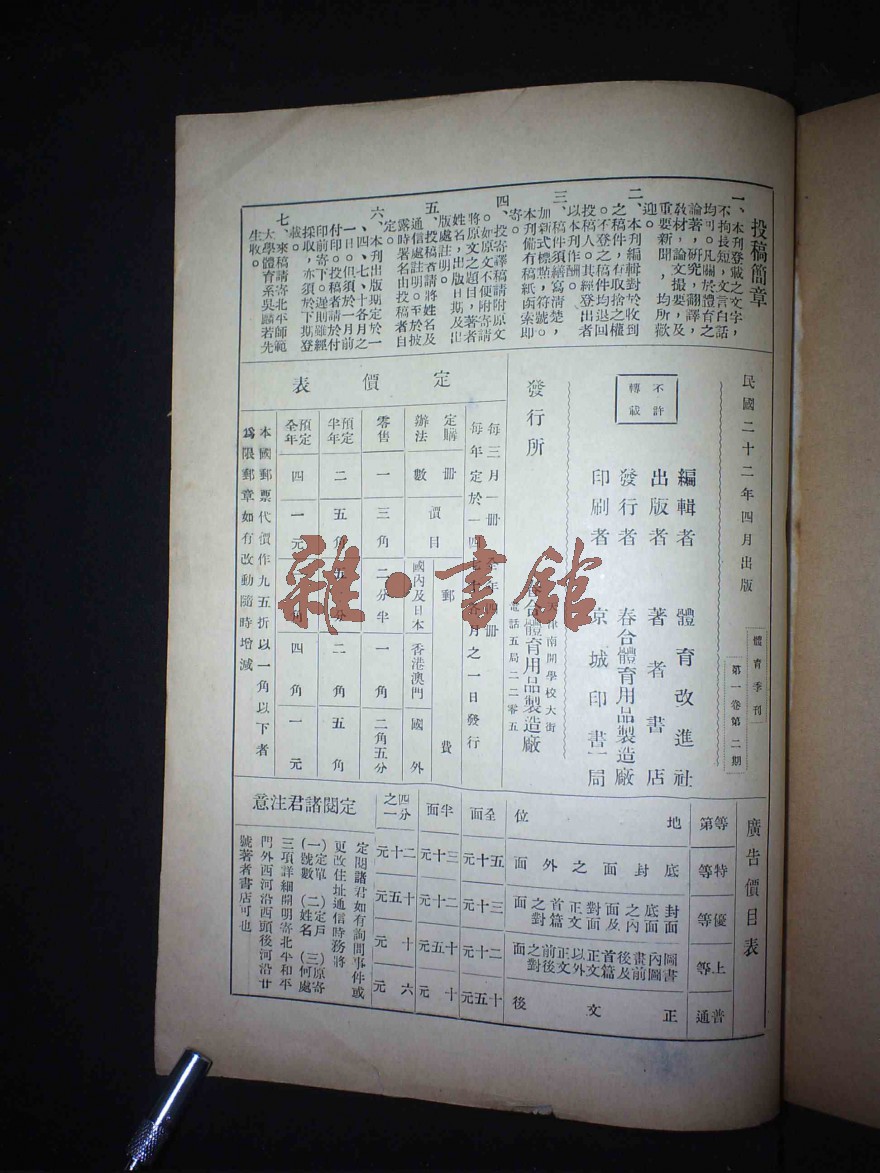 投稿簡章
一、本刊登載之文字，
不拘長短，文言白話
均可。凡關於體育之
論著，研究，翻譯，
教材，論文撮要，及
重要新聞，均所歡
迎。
二、本刊編輯對於收到
之稿件，有取捨之權
。不登之稿件均退回
投稿人。其經登出者
以本刊作酬。
三、稿件須繕寫清楚，
加新式標點，符號。
本刊備有稿紙函索即
寄。
四、投寄譯稿請附原文
。如原文不便附寄請
將原文之題目，著者
姓名，出版日期及出
版處註明。
五、投稿者請將姓名及
通信處註明。至於披
露時署名由投稿者自
定。
六、本刊出版期定於一
、四、七、十各月之
一日。但須於一月前
付印。投稿者請於付
印前寄下。遲則雖經
採取，亦須於下期登
載。
七、來稿請寄北平師範
大學體育系吳麟若先
生收。
民國二十二年四月出版
體育季刊
第一卷第二期
編輯者 體育改進社
出版者 著者書店
發行者 春合體育用品製造廠
印刷者 京城印書局
不許
轉載
發行所
天津南開學校大街
春合體育用品製造廠
電話五局二二零五
定價表
每三月一冊 全年四冊
每年定於一四七十各月之一日發行
定購辦法 冊數 價目 郵費
國內及日本 香港澳門 國外
零售 一 三角 二分半 一角 二角五分
預定半年 二 五角 五分 二角 五角
預定全年 四 一元 一角 四角 一元
本國郵票代價作九五折以一角以下者
為限郵章如有改動隨時增減
廣告價目表
等第 地位 全面 半面 四分之一
特等 底封面之外面 五十元 三十元 二十元
優等 封面底面之內面及對面正文首篇之對面 三十元 二十元 十五元
上等 圖書內圖畫前後及首篇正文以外正文前後之對面 二十元 十五元 十元
普通 正文後 十五元 十元 六元
定閱諸君注意
定閱諸君如有詢問事件或
更改住址通信時務將
(一)定單(二)定戶(三)原寄
(一)號數(二)姓名(三)何處
三項詳細開明寄北平和平
門外西河沿西頭後河沿廿
號著者書店可也
雜·書館